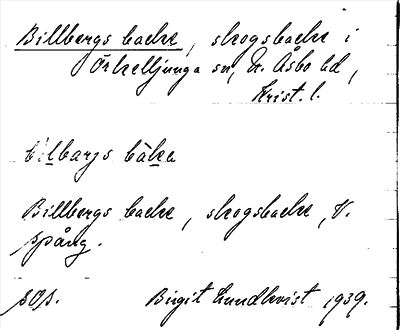 Billbergs backe, skogsbacke i
Örkelljunga sn, N. Åsbo hd,
Krist. l.
bilbarjs bàka
Billbergs backe, skogsbacke, V.
spång.
sos.
Birgit Lundkvist 1939.